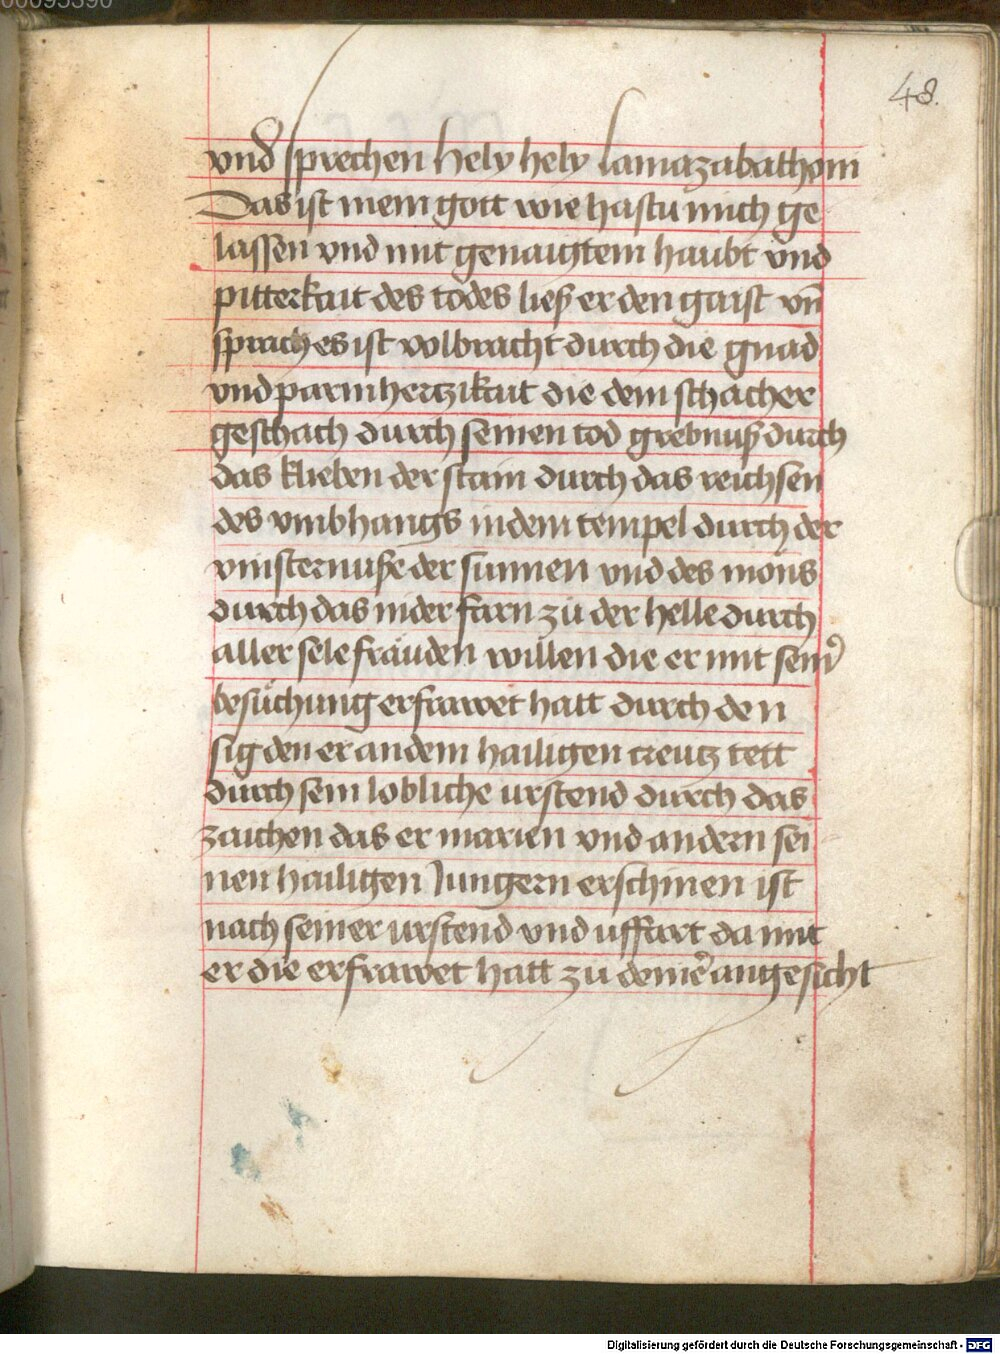 00095390
48.
vnd sprechen hely hely lamazabathani
Das ist mein gott wie hastu mich ge
lassen vnd mit genaigtem haubt vnd
pitterkait des todes ließ er den gaist vn̄
sprach es ist volbracht durch die gnad
vnd parmhertzikait die dem schacher
geschach durch seinen tod grebnuß durch
das klieben der stain durch das reichsen
des vmbhangs in dem tempel durch der
vinsternuße der sunnen vnd des mons
durch das nider farn zů der helle durch
aller sele fräuden willen die er mit sein̾
besůchung erfrawet hatt durch den
sig den er an dem hailigen creutz tett
durch sein lobliche urstend durch das
zaichen das er marien vnd andern sei
nen hailigen Jungern erschinen ist
nach seiner urstend vnd uffart da mit
er die erfrawet hatt zu deine᷑ angesicht
Digitalisierung gefördert durch die Deutsche Forschungsgemeinschaft - DFG